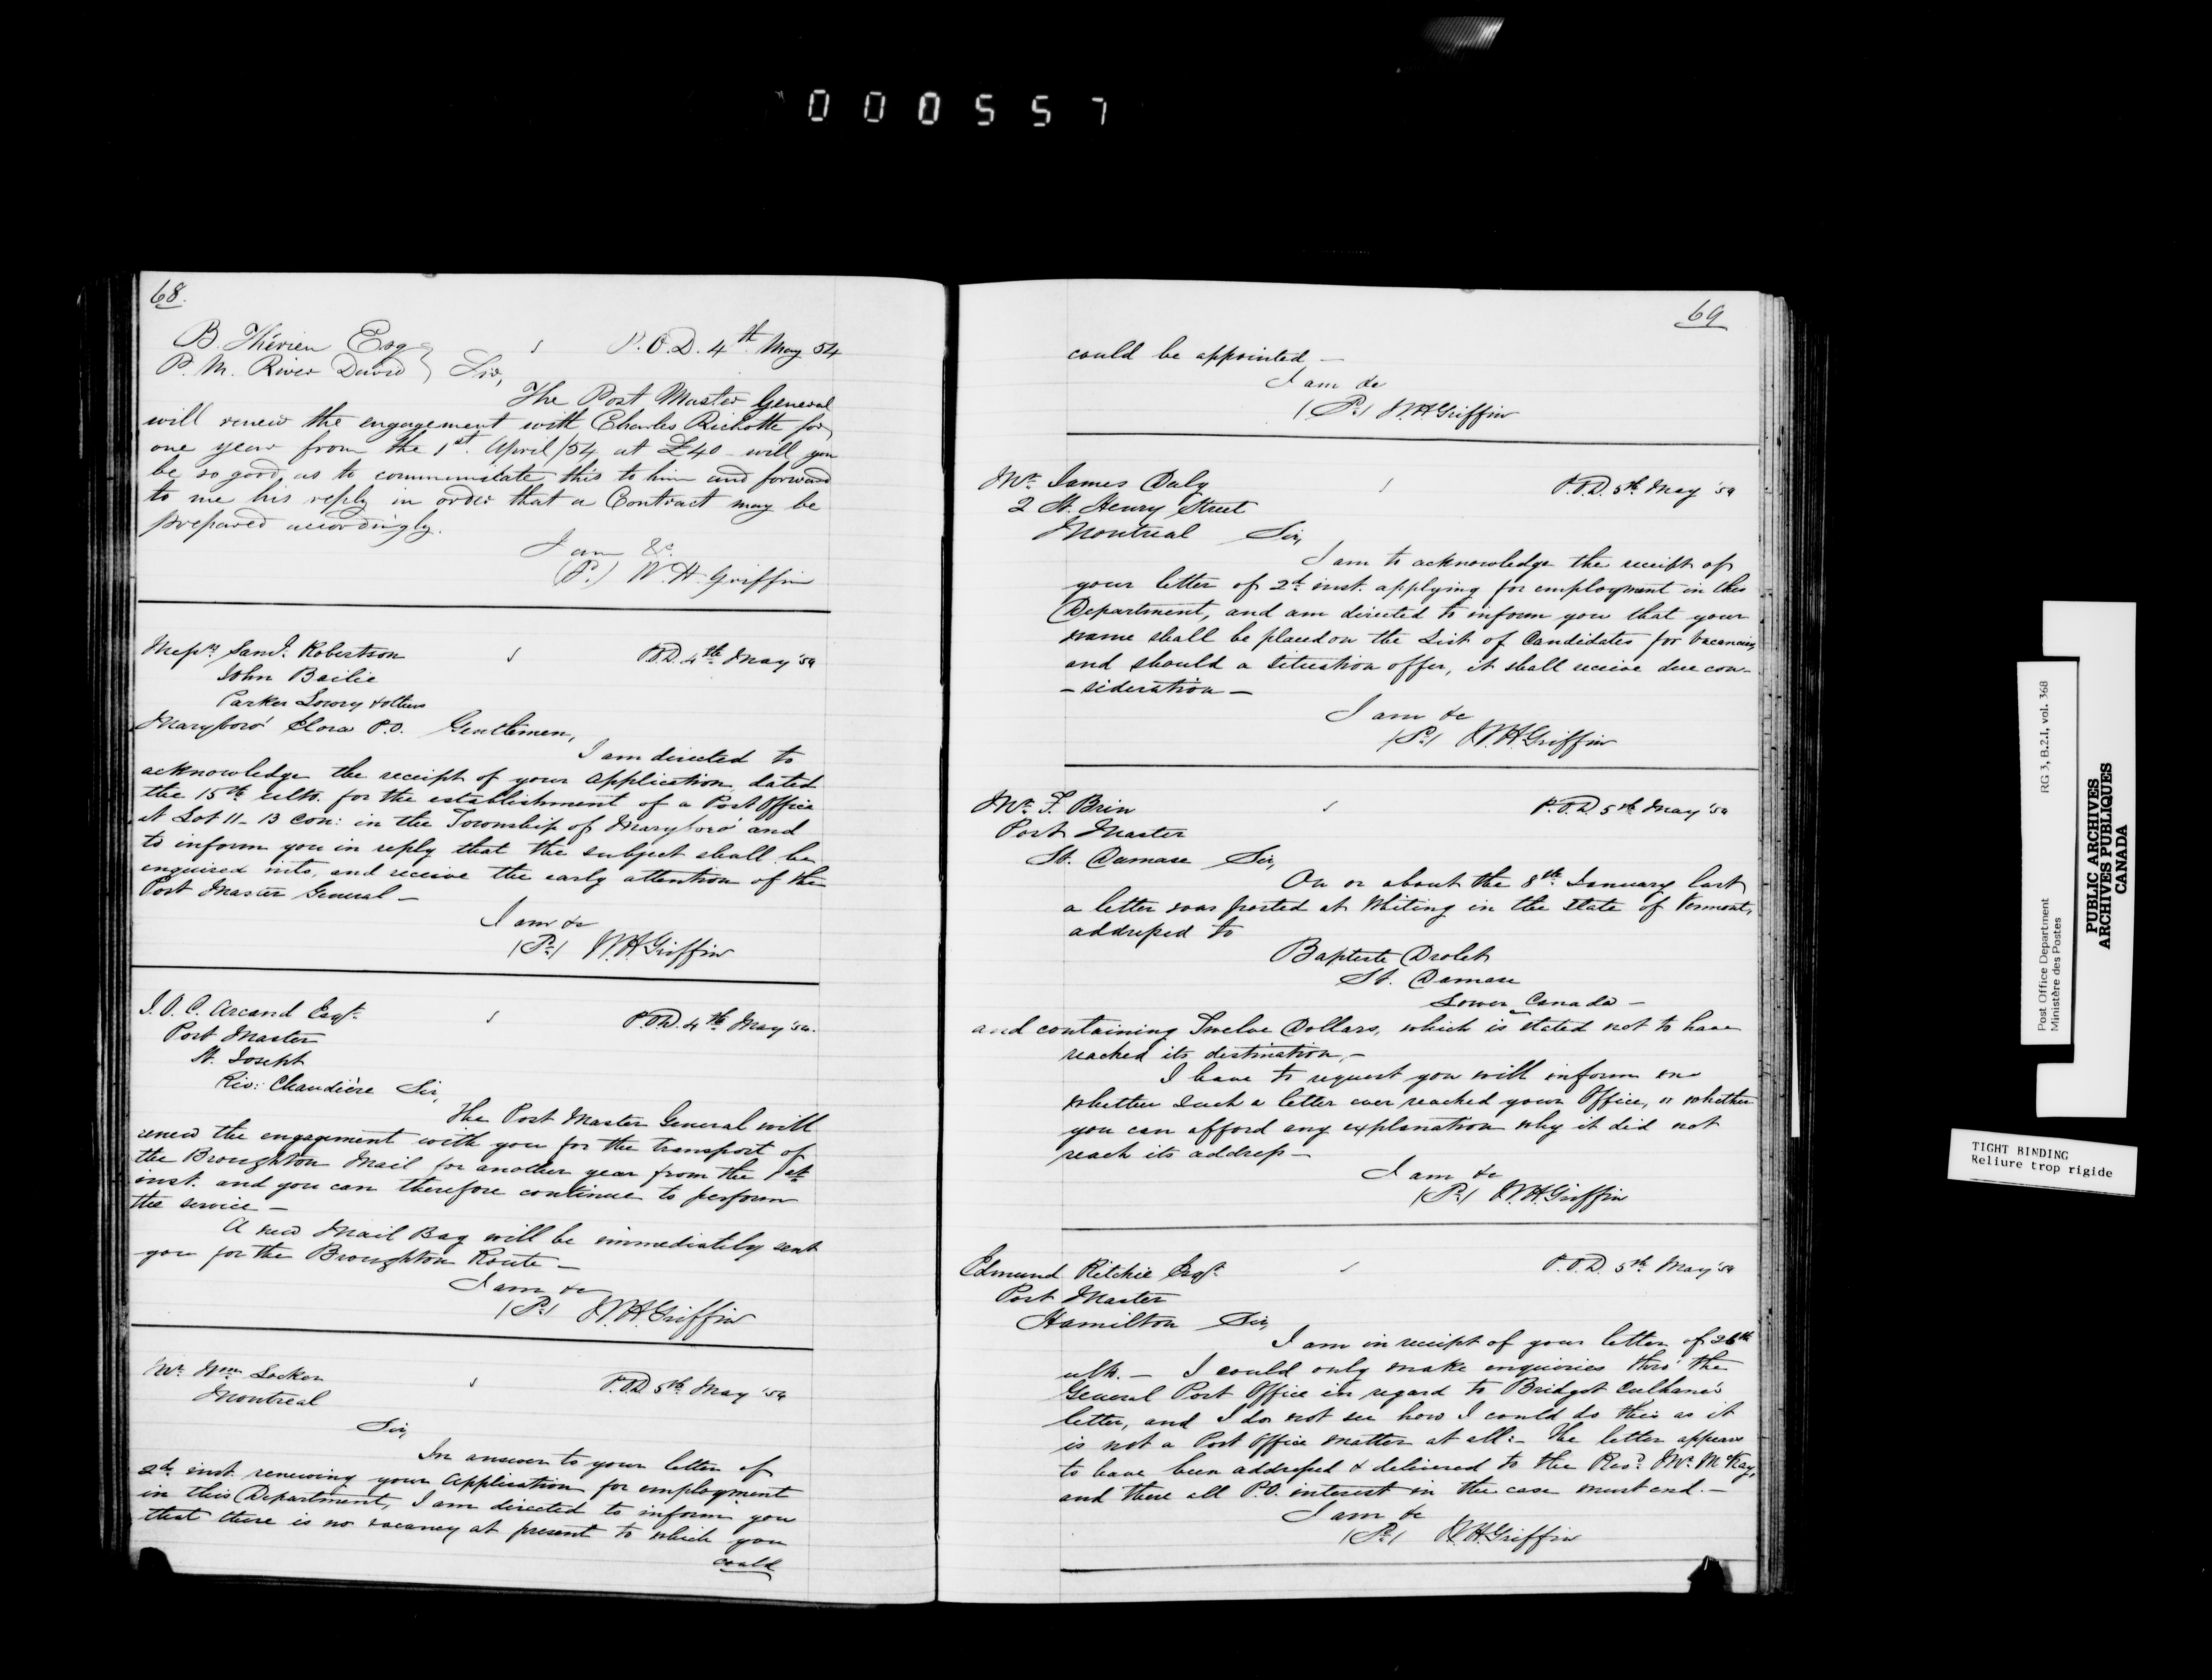 000557
68.
B. Thérien Esq P.O.D. 4th May 54
P. M. River David } Sir,
The Post Master General
will renew the engagement with Charles Richotte for
one year from the 1st April/54 at £40 - will you
be so good as to communicate this to him and forward
to me his reply in order that a Contract may be
prepared accordingly.
I am &c
(P.) W. H. Griffin
Messrs Saml. Robertson P.O.D. 4th May '54
John Bailie
Parker Lowry & others
Maryboro' Elora P.O. Gentlemen,
I am directed to
acknowledge the receipt of your application dated
the 15th ulto. for the establishment of a Post Office
at Lot 11 - 13 Con: in the Township of Maryboro' and
to inform you in reply that the subject shall be
enquired into, and receive the early attention of the
Post Master General -
I am &c
(P.) W. H. Griffin
J. O. C. Arcand Esqr. P.O.D. 4th May '54.
Post Master
St. Joseph
Riv: Chaudière Sir,
The Post Master General will
renew the engagement with you for the transport of
the Broughton Mail for another year from the 1st
inst. and you can therefore continue to perform
the service -
A new Mail Bag will be immediately sent
you for the Broughton Route -
I am &c
(P.) W. H. Griffin
Mr. Wm Locker P.O.D. 5th May '54
Montreal
Sir,
In answer to your letter of
2d inst. renewing your application for employment
in this Department, I am directed to inform you
that there is no vacancy at present to which you
could
69
could be appointed -
I am &c
(P.) W. H. Griffin
Mr. James Daly P.O.D. 5th May '54
2 St. Henry Street
Montreal Sir,
I am to acknowledge the receipt of
your letter of 2d inst. applying for employment in this
Department, and am directed to inform you that your
name shall be placed on the List of Candidates for vacancies
and should a situation offer, it shall receive due con-
- sideration -
I am &c
(P.) W. H. Griffin
Mr. F. Brin P.O.D. 5th May '54
Post Master
St. Damase Sir,
On or about the 8th January last
a letter was posted at Whiting in the State of Vermont,
addressed to
Baptiste Drolet
St. Damase
Lower Canada -
and containing Twelve Dollars, which is stated not to have
reached its destination, -
I have to request you will inform me
whether such a letter ever reached your Office, or whether
you can afford any explanation why it did not
reach its address -
I am &c
(P.) W. H. Griffin
Edmund Ritchie Esqr. P.O.D. 5th May '54
Post Master
Hamilton Sir,
I am in receipt of your letter of 26th
ulto. - I could only make enquiries thro' the
General Post Office in regard to Bridget Culhane's
letter, and I do not see how I could do this as it
is not a Post Office matter at all: - The letter appears
to have been addressed & delivered to the Revd. Mr. McKay,
and there all P.O. interest in the case must end. -
I am &c
(P.) W. H. Griffin
Post Office Department RG 3, B.2.1, vol. 368
Ministère des Postes
PUBLIC ARCHIVES
ARCHIVES PUBLIQUES
CANADA
TIGHT BINDING
Reliure trop rigide